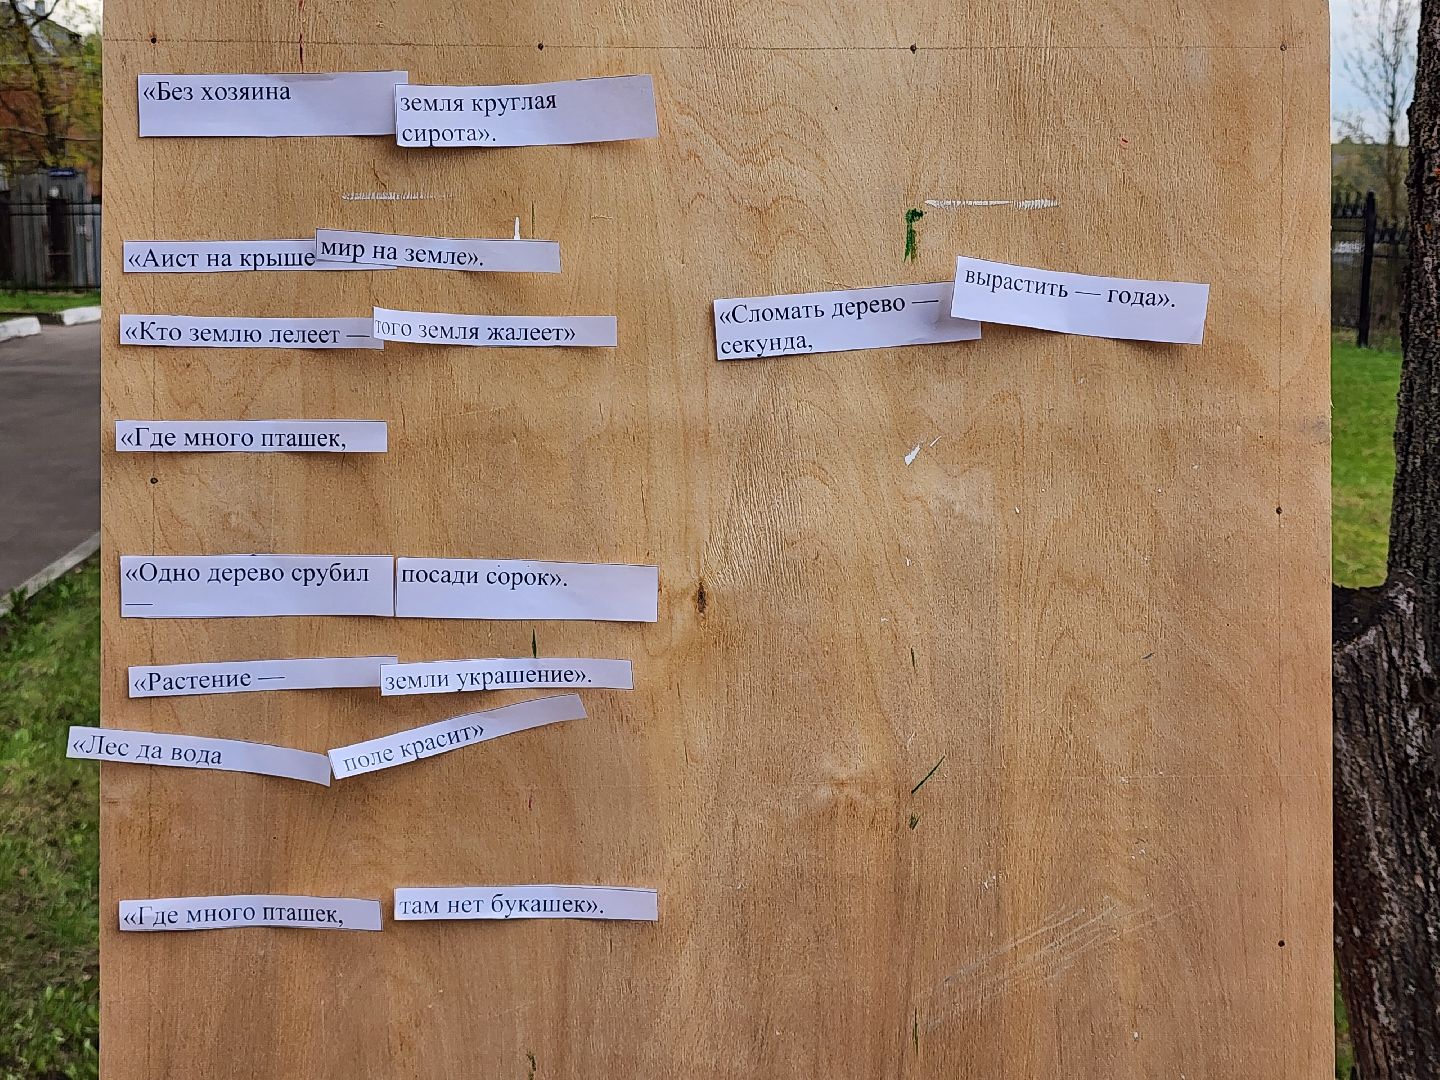 «Без хозяина
земля круглая
сирота».
«Аист на крыше
мир на земле».
«Кто землю лелеет —
того земля жалеет»
«Сломать дерево —
секунда,
вырастить — года».
«Где много пташек,
«Одно дерево срубил
—
посади сорок».
«Растение —
земли украшение».
«Лес да вода
поле красит»
«Где много пташек,
там нет букашек».